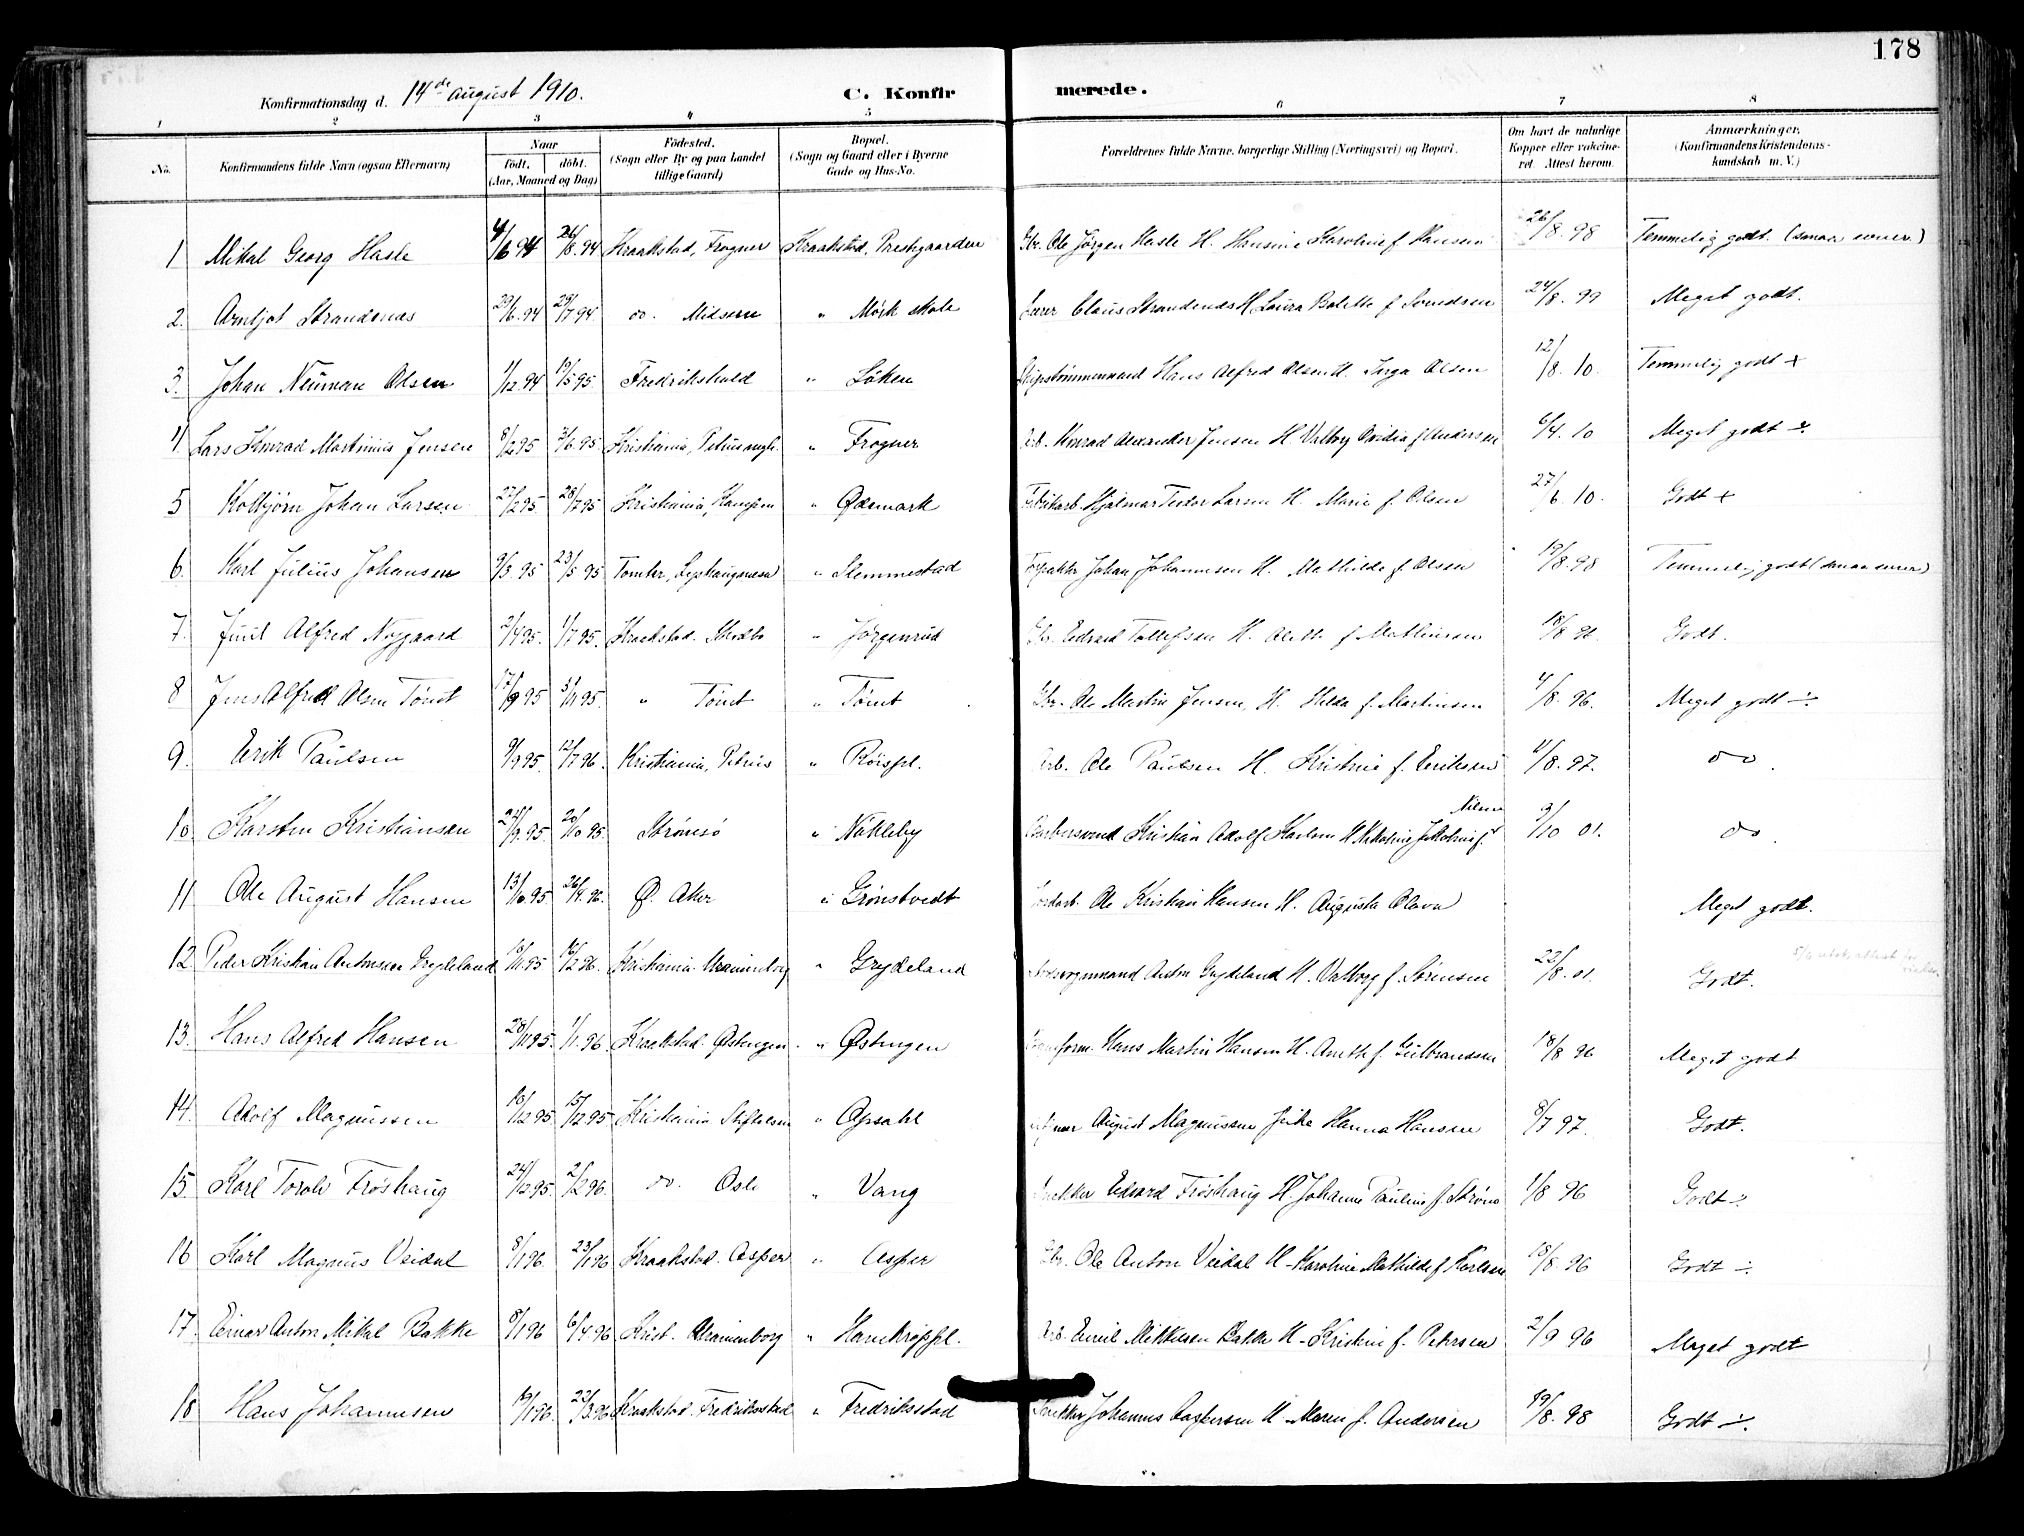 178
Konfirmationsdag d. 14de august 1910. C. Konfirmerede.
1 2 3 4 5 6 7 8
No. Konfirmandens fulde Navn (ogsaa Efternavn) Naar født, døbt. (Aar, Maaned og Dag) Fødested. (Sogn eller By og paa Landet tillige Gaard) Bopæl. (Sogn og Gaard eller i Byerne Gade og Hus-No. Forældrenes fulde Navne, borgerlige Stilling (Næringsvei) og Bopæl. Om havt de naturlige Kopper eller vaccineret. Attest herom. Anmærkninger. (Konfirmandens Kristendomskundskab m. V.)
1 Mikal Georg Hasle 4/6 94 26/8 94 Kraakstad, Frogner Kraakstad, Prestgaarden Gbr. Ole Jörgen Hasle H. Hansine Karoline f. Hansen 26/8 98 Temmelig godt. (smaa evner.)
2. Arnljot Strandenæs 29/6 94 29/7 94 do. Midsem " Mörk skole Lærer Claus Strandenæs H. Laura Bolette f. Svendsen 24/8. 99 Meget godt.
3. Johan Neuman Olsen 1/12 94 19/5 95 Fredrikshald " Löken Skipstömmermand Hans Alfred Olsen H. Inga Olsen 12/8. 10. Temmelig godt +
4 Lars Konrad Martinius Jensen 8/2 95 3/6 95 Kristiania, Petrusmgh. " Frogner Arb. Konrad Alexander Jensen H. Valborg Ovidia f. Andersen 6/4. 10 Meget godt ÷.
5 Kolbjørn Johan Larsen 27/2 95 28/7 95 Kristiania, Kampen " Ødemark Fabrikarb. Hjalmar Teodor Larsen H. Marie f. Olsen 27/6 10. Godt +
6. Karl Julius Johansen 9/3 95 23/5 95 Tomter, " Slemmestad Johan Johannesen H. Mathilde f. Olsen 19/8. 98 Temmelig godt (smaa evner)
7. Juul Alfred Nygaard 2/4 95. 1/7 95. Kraakstad. " Jörgenrud Gbr. Edvard Tollefsen H. Alette f. Mathisen 18/8 96. Godt.
8 Jens Alfred Olsen Tömt 17/9 95 3/11 95. " Tömt " Tömt Gbr. Ole Martin Jensen, H. Hilda f. Martinsen 4/8. 96. Meget godt ÷.
9. Erik Paulsen 9/9 95. 12/7 96. Kristiania, Petrus " Röispl. Arb. Ole Paulsen H. Kristine f. Eriksen 4/8. 97. do.
10 Karsten Kristiansen 24/9. 95. 20/10 95. Strömsö " Nökleby Kristian Adolf Karlsen H. Nikoline Jakobine f. Nilsen 3/10 01. do.
11 Ole August Hansen 13/10 95. 26/4. 96. Ø. Aker " Grönstvedt Jordarb. Ole Kristian Hansen H. Augusta Olava Meget godt.
12 Peder Kristian Antonsen Grydeland 16/11 95 16/2 96. Kristiania Uranienborg " Grydeland Anton Grydeland H. Valborg f. Sörensen 22/8. 01. Godt.
13. Hans Alfred Hansen 28/11 95. 1/1. 96. Kraakstad. Østengen " Østengen Hans Martin Hansen H. Anette f. Gulbranssen 18/8 96 Meget godt
14. Adolf Magnussen 16/12 95. 15/12 95 Kristiania Stiftelsen " Opsahl August Magnussen Pike Hanna Hansen 8/7 97. Godt.
15. Karl Torolv Fröshaug 24/12 95. 2/2 96. do. Oslo " Vang Snekker Edvard Fröshaug H. Johanne Pauline f. Ström 1/8 96 Godt ÷
16 Karl Magnus Veidal 8/1 96. 23/1 96 Kraakstad. Asper " Asper Gbr. Ole Anton Veidal H. Karoline Mathilde f. Karlsen 18/8. 96 Godt ÷.
17. Einar Anton Mikal Bakke 8/1 96 6/4 96 Krist. Uranienborg " Arb. Emil Mikkelsen Bakke H. Kristine f. Petersen 2/9 96 Meget godt
18 Hans Johannesen 19/1 96. 22/3. 96 Kraakstad. Fredriksstad " Fredriksstad Snekker Johannes Caspersen H. Maren f. Andersen 19/8. 98 Godt ÷.